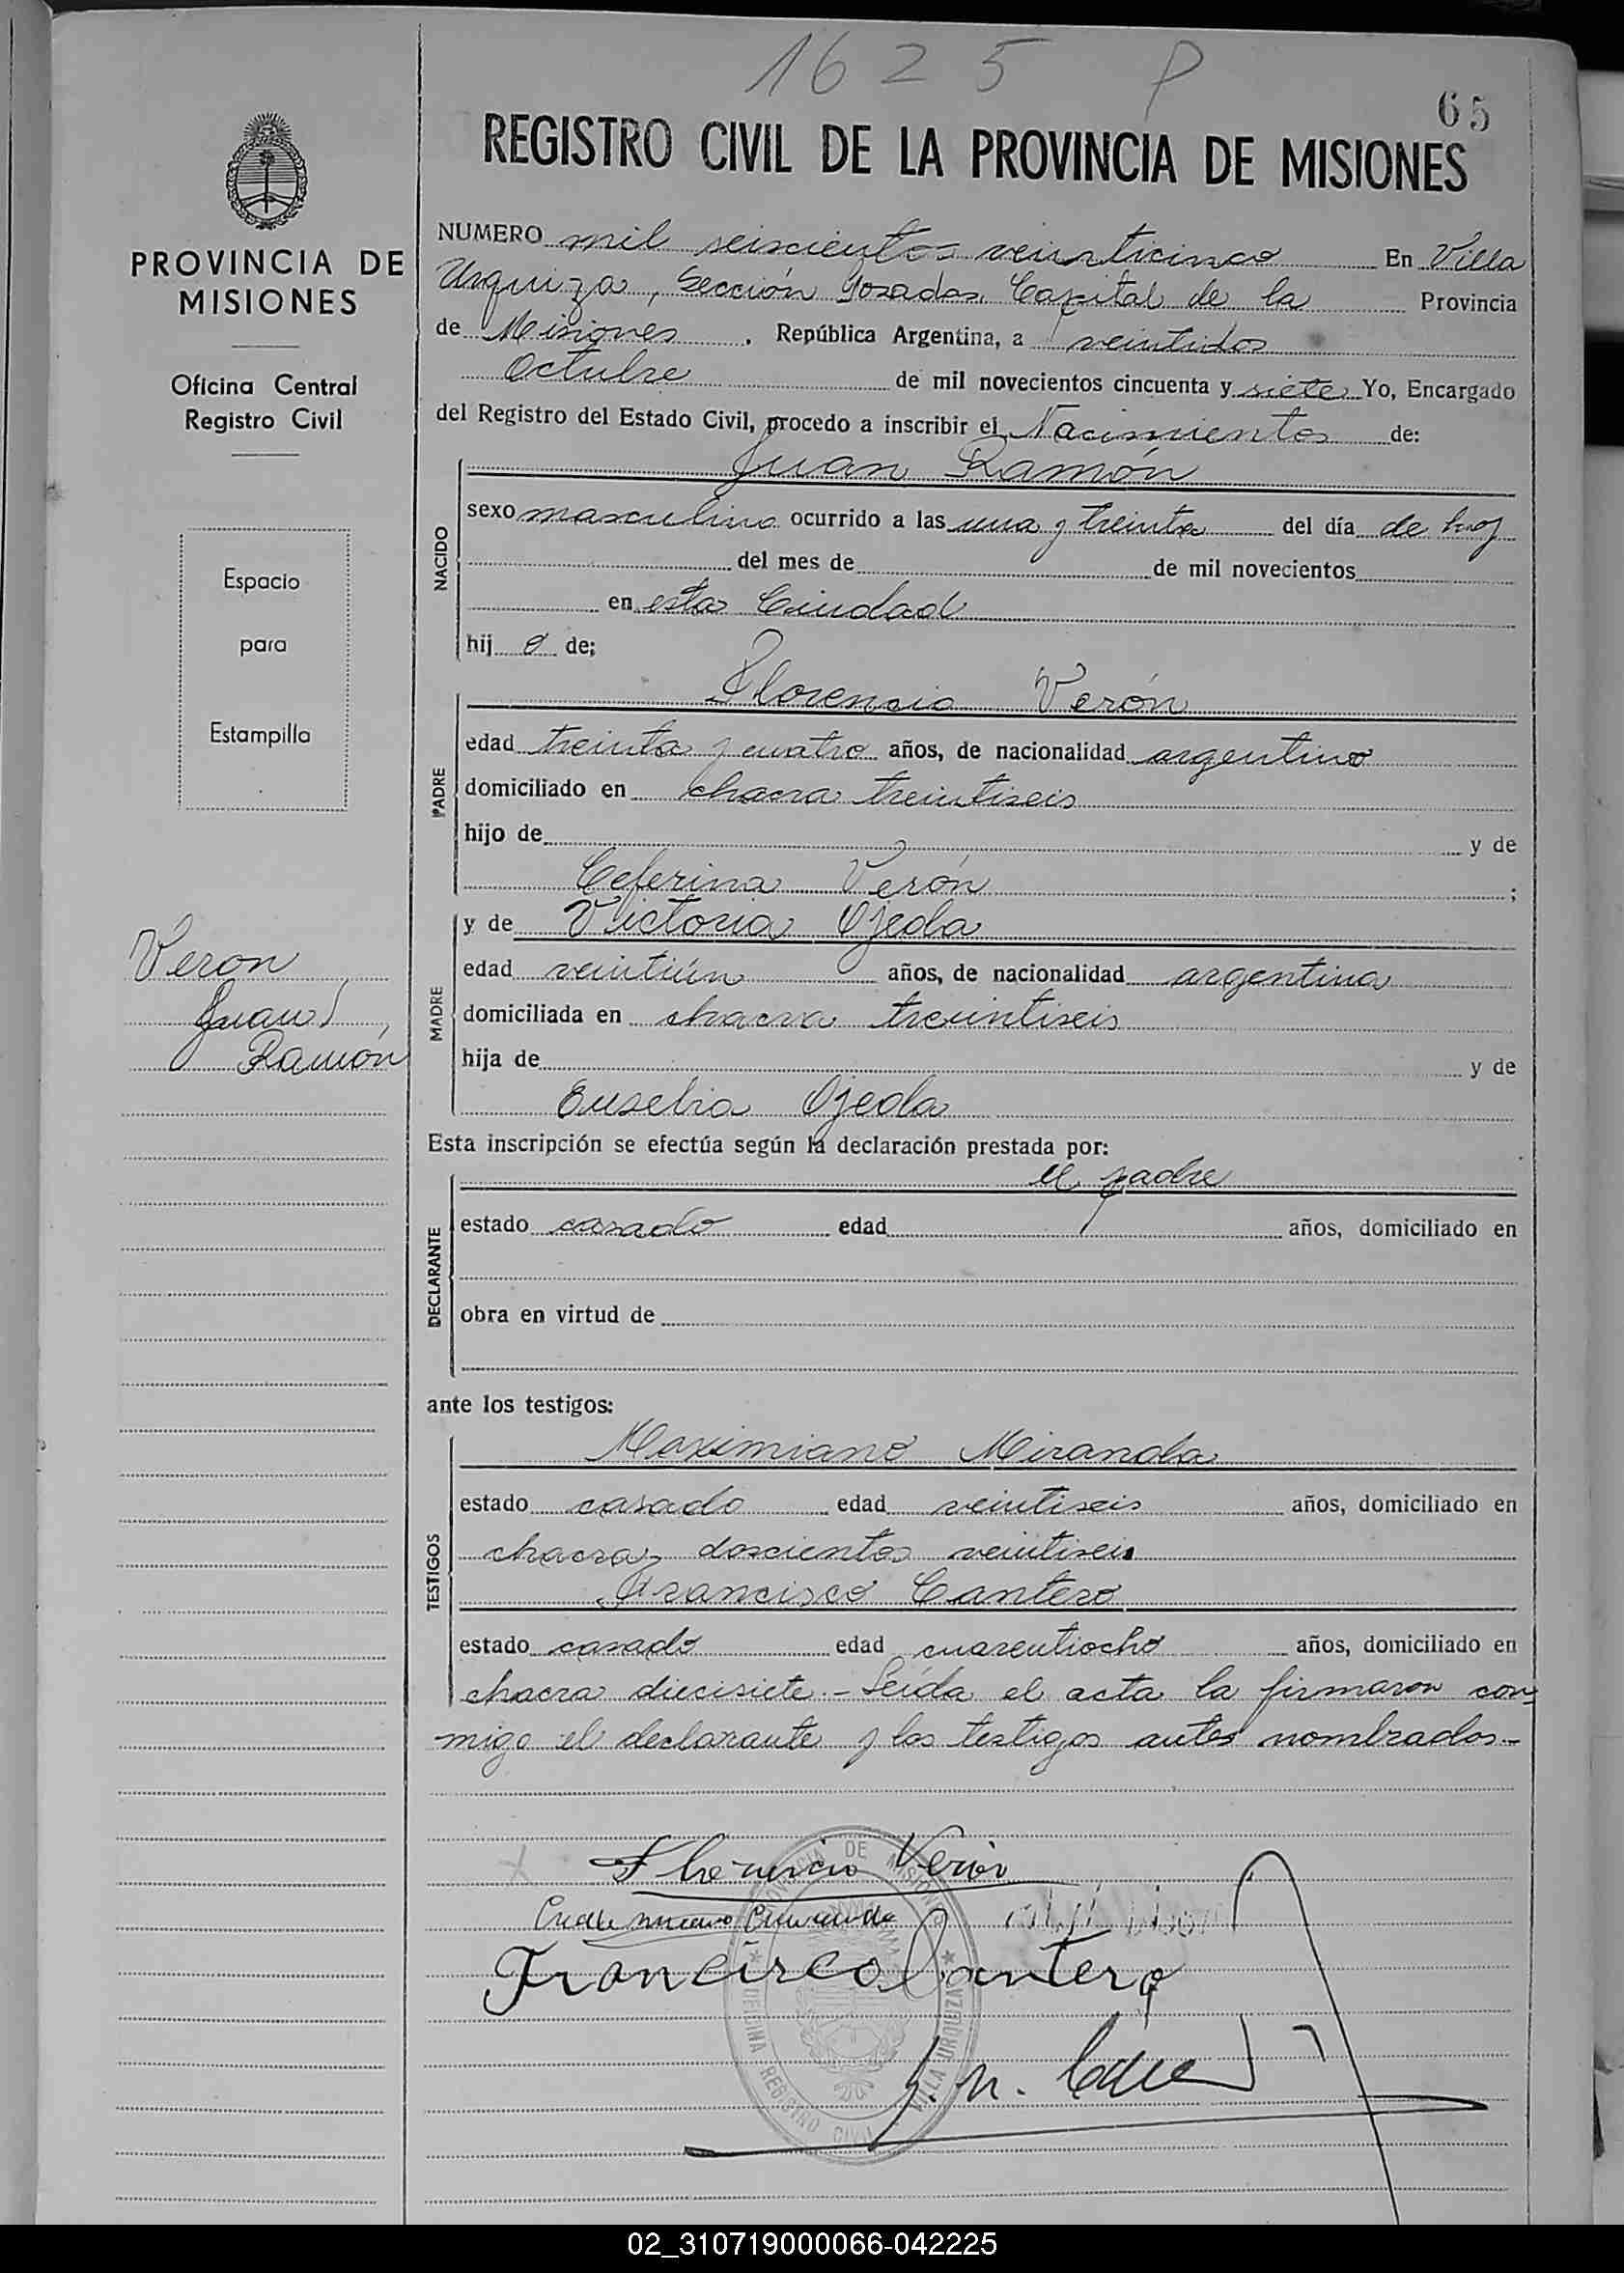 1625 P
65
REGISTRO CIVIL DE LA PROVINCIA DE MISIONES
PROVINCIA DE
MISIONES
Oficina Central
Registro Civil
Espacio
para
Estampilla
Veron
Juan
Ramón
NUMERO mil seiscientos veinticinco En Villa
Urquiza, Sección Posadas Capital de la Provincia
de Misiones. República Argentina, a veintidos
Octubre de mil novecientos cincuenta y siete Yo, Encargado
del Registro del Estado Civil, procedo a inscribir el Nacimiento de:
Juan Ramón
NACIDO
sexo masculino ocurrido a las una y treinta del día de hoy
del mes de de mil novecientos
en esta Ciudad
hij o de;
Florencio Verón
PADRE
edad treinta y cuatro años, de nacionalidad argentino
domiciliado en chacra treintiseis
hijo de y de
Ceferina Verón ;
y de Victoria Ojeda
MADRE
edad veintiún años, de nacionalidad argentina
domiciliada en chacra treintiseis
hija de y de
Eusebia Ojeda
Esta inscripción se efectúa según la declaración prestada por:
el padre
DECLARANTE
estado casado edad años, domiciliado en
obra en virtud de
ante los testigos:
Maximiano Miranda
TESTIGOS
estado casado edad veintiseis años, domiciliado en
chacra doscientos veintiseis
Francisco Cantero
estado casado edad cuarentiocho años, domiciliado en
chacra diecisiete.- Leída el acta la firmaron con-
migo el declarante y los testigos antes nombrados.-
Florencio Verón
Francisco Cantero
PROVINCIA DE MISIONES
OFICINA REGISTRO CIVIL
VILLA URQUIZA
02_310719000066-042225